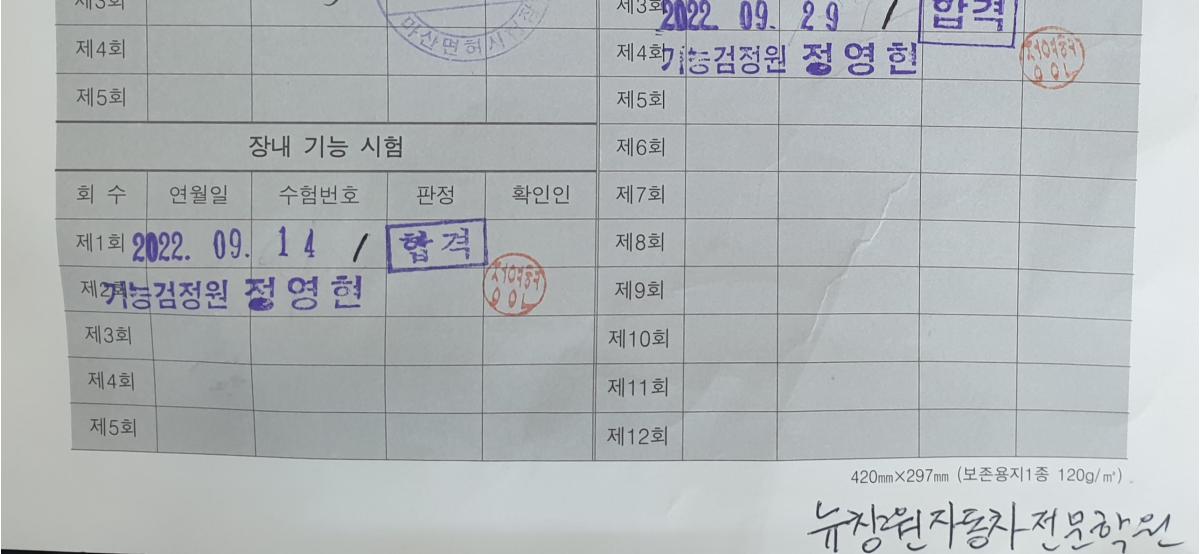 제3회
마산면허시험
제4회
제5회
장내 기능 시험
회 수 연월일 수험번호 판정 확인인
제1회 2022. 09. 14 / 합격
제2회 기능검정원 정영현
제3회
제4회
제5회
제3회 2022. 09. 29 / 합격
제4회 기능검정원 정영현
제5회
제6회
제7회
제8회
제9회
제10회
제11회
제12회
420㎜×297㎜ (보존용지1종 120g/㎡)
뉴창원자동차전문학원